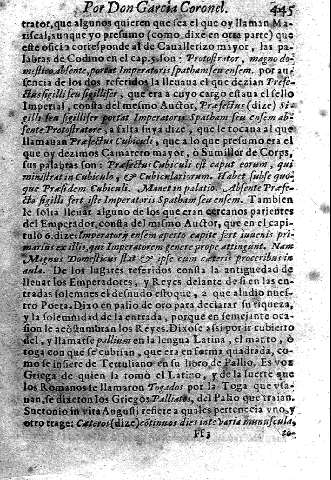 Por Don Garcia Coronel. 445
trator, que algunos quieren que sea el que oy llaman Ma-
riscal, aunque yo presumo (como dixe en otra parte) que
este oficio corresponde al de Cauallerizo mayor, las pa-
labras de Codino en el cap. 5. son: Protostrator, magno do-
mestico absente, portat Imperatoris spatham seu ensem. por au-
sencia de los dos referidos la lleuaua el que dezian Præfe-
ctus sigilli seu sigillifer, que era a cuyo cargo estaua el sello
Imperial, consta del mesmo Auctor, Præfectus (dize) Sigi-
lli seu sigillifer portat Imperatoris Spatham seu ensem ab-
sente Protostratore, a falta suya dize, que le tocaua al que
llamauan Præfectus Cubiculi, que a lo que presumo era el
que oy dezimos Camarero mayor, o Sumiller de Corps,
sus palabras son: Præfectus Cubiculi est caput eorum, qui
ministrat in Cubiculo, & Cubiculariorum. Habet subse quo-
que Præsidem Cubiculi. Manet in palatio. Absente Præfe-
cto sigilli fert iste Imperatoris Spatham seu ensem. Tambien
le solia lleuar alguno de los que eran cercanos parientes
del Emperador, consta del mismo Auctor, que en el capi-
tulo 6. dize: Imperatore ensem aperto capite fert iuuenis pri-
marius ex illis, qui Imperatorem genere prope attingunt. Nam
Magnus Domesticus stat & ipse cum cæteris proceribus in
aula. De los lugares referidos consta la antiguedad de
lleuar los Emperadores, y Reyes delante de si en las en-
tradas solemnes el desnudo estoque, a que aludio nuestro
Poeta. Dixo en palio de oro para declarar su riqueza,
y la solemnidad de la entrada, porque en semejante ocasi-
on se acostumbran los Reyes. Dixose assi por ir cubierto
del, y llamarse pallium en la lengua Latina, el manto, ò
toga con que se cubrian, que era en forma quadrada, co-
mo se insiere de Tertuliano en su libro de Pallio. Es voz
Griega de quien la tomò el Latino, y de la suerte que
los Romanos se llamaron Togados por la Toga que vsa-
uan, se dixeron los Griegos Palliatos, del Palio que traian.
Suetonio in vita Augusti refiere a quales pertenecia vno, y
otro trage: Cæteros (dize) continuos dies inter varia munuscula,
Ff 3 to-